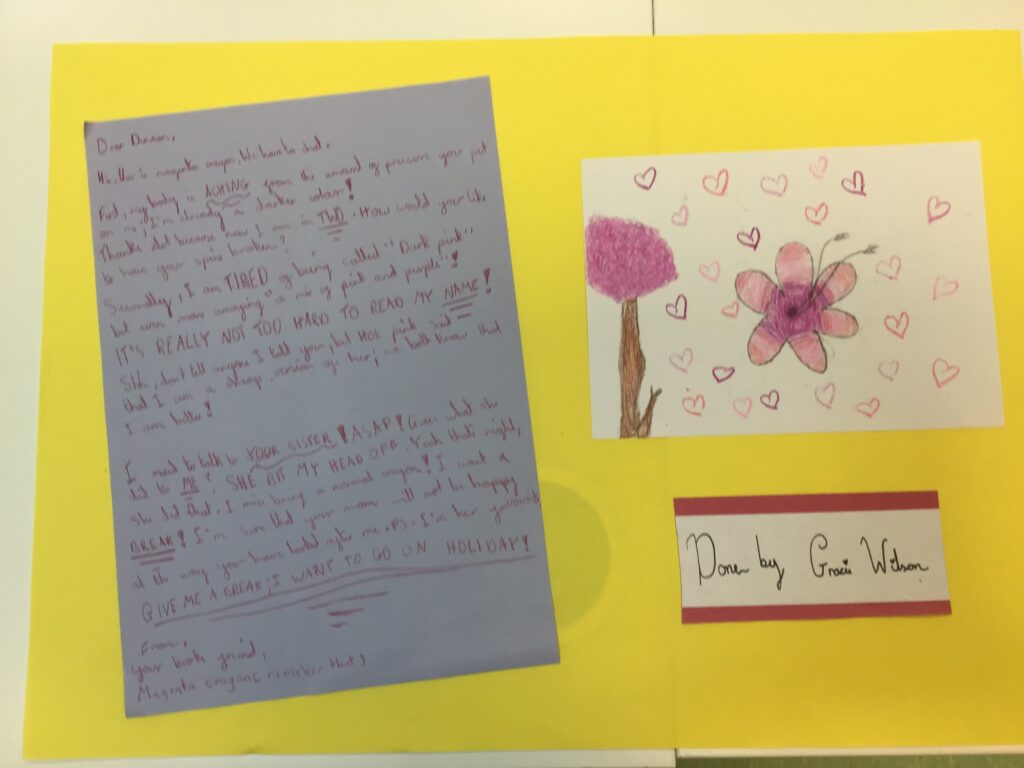 Dear Duncan,
Hi, this is magenta crayon, We have to chat.
First, my body is ACHING from the amount of pressure you put
on me, I'm already a darker colour!
Thanks alot because now I am in TWO. How would you like
to have your spine broken?
Secondly, I am TIRED of being called "Dark pink"
but even more annoying "a mix of pink and purple"!
IT'S REALLY NOT TOO HARD TO READ MY NAME!
Shh, don't tell anyone I told you, but HOT pink said
that I am a cheap version of her; we both know that
I am better!
I need to talk to YOUR SISTER! ASAP! Given what she
did to ME? SHE BIT MY HEAD OFF. Yeah that's right,
she did that. I miss being a normal crayon! I want a
BREAK! I'm sure that your mom will not be happy
at the way you have looked after me. Ps. I'm her favourite
GIVE ME A BREAK; I WANT TO GO ON HOLIDAY!
From,
your broke friend,
Magenta crayon( remember that)
Done by Gracie Wilson